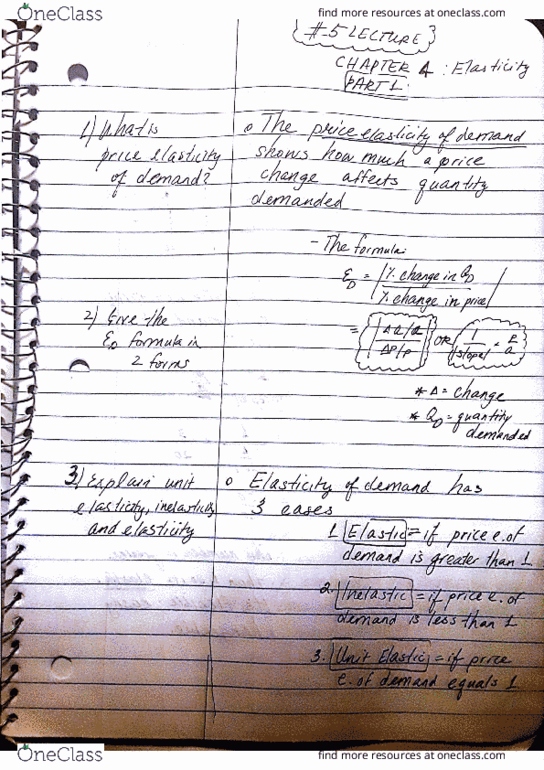 OneClass
find more resources at oneclass.com
#-5 LECTURE
CHAPTER 4 : Elasticity
PART 1.
1) What is
price elasticity
of demand?
o The price elasticity of demand
shows how much a price
change affects quantity
demanded
- The formula:
ED = | % change in QD
% change in price |
2) Give the
ED formula in
2 forms
= | ΔQ/Q
ΔP/P | OR | 1
slope | × P
Q
* Δ = change
* QD = quantity
demanded
3) Explain unit
elasticity, inelasticity
and elasticity
o Elasticity of demand has
3 cases
1. Elastic = if price e. of
demand is greater than 1.
2. Inelastic = if price e. of
demand is less than 1
3. Unit Elastic = if price
e. of demand equals 1
OneClass
find more resources at oneclass.com